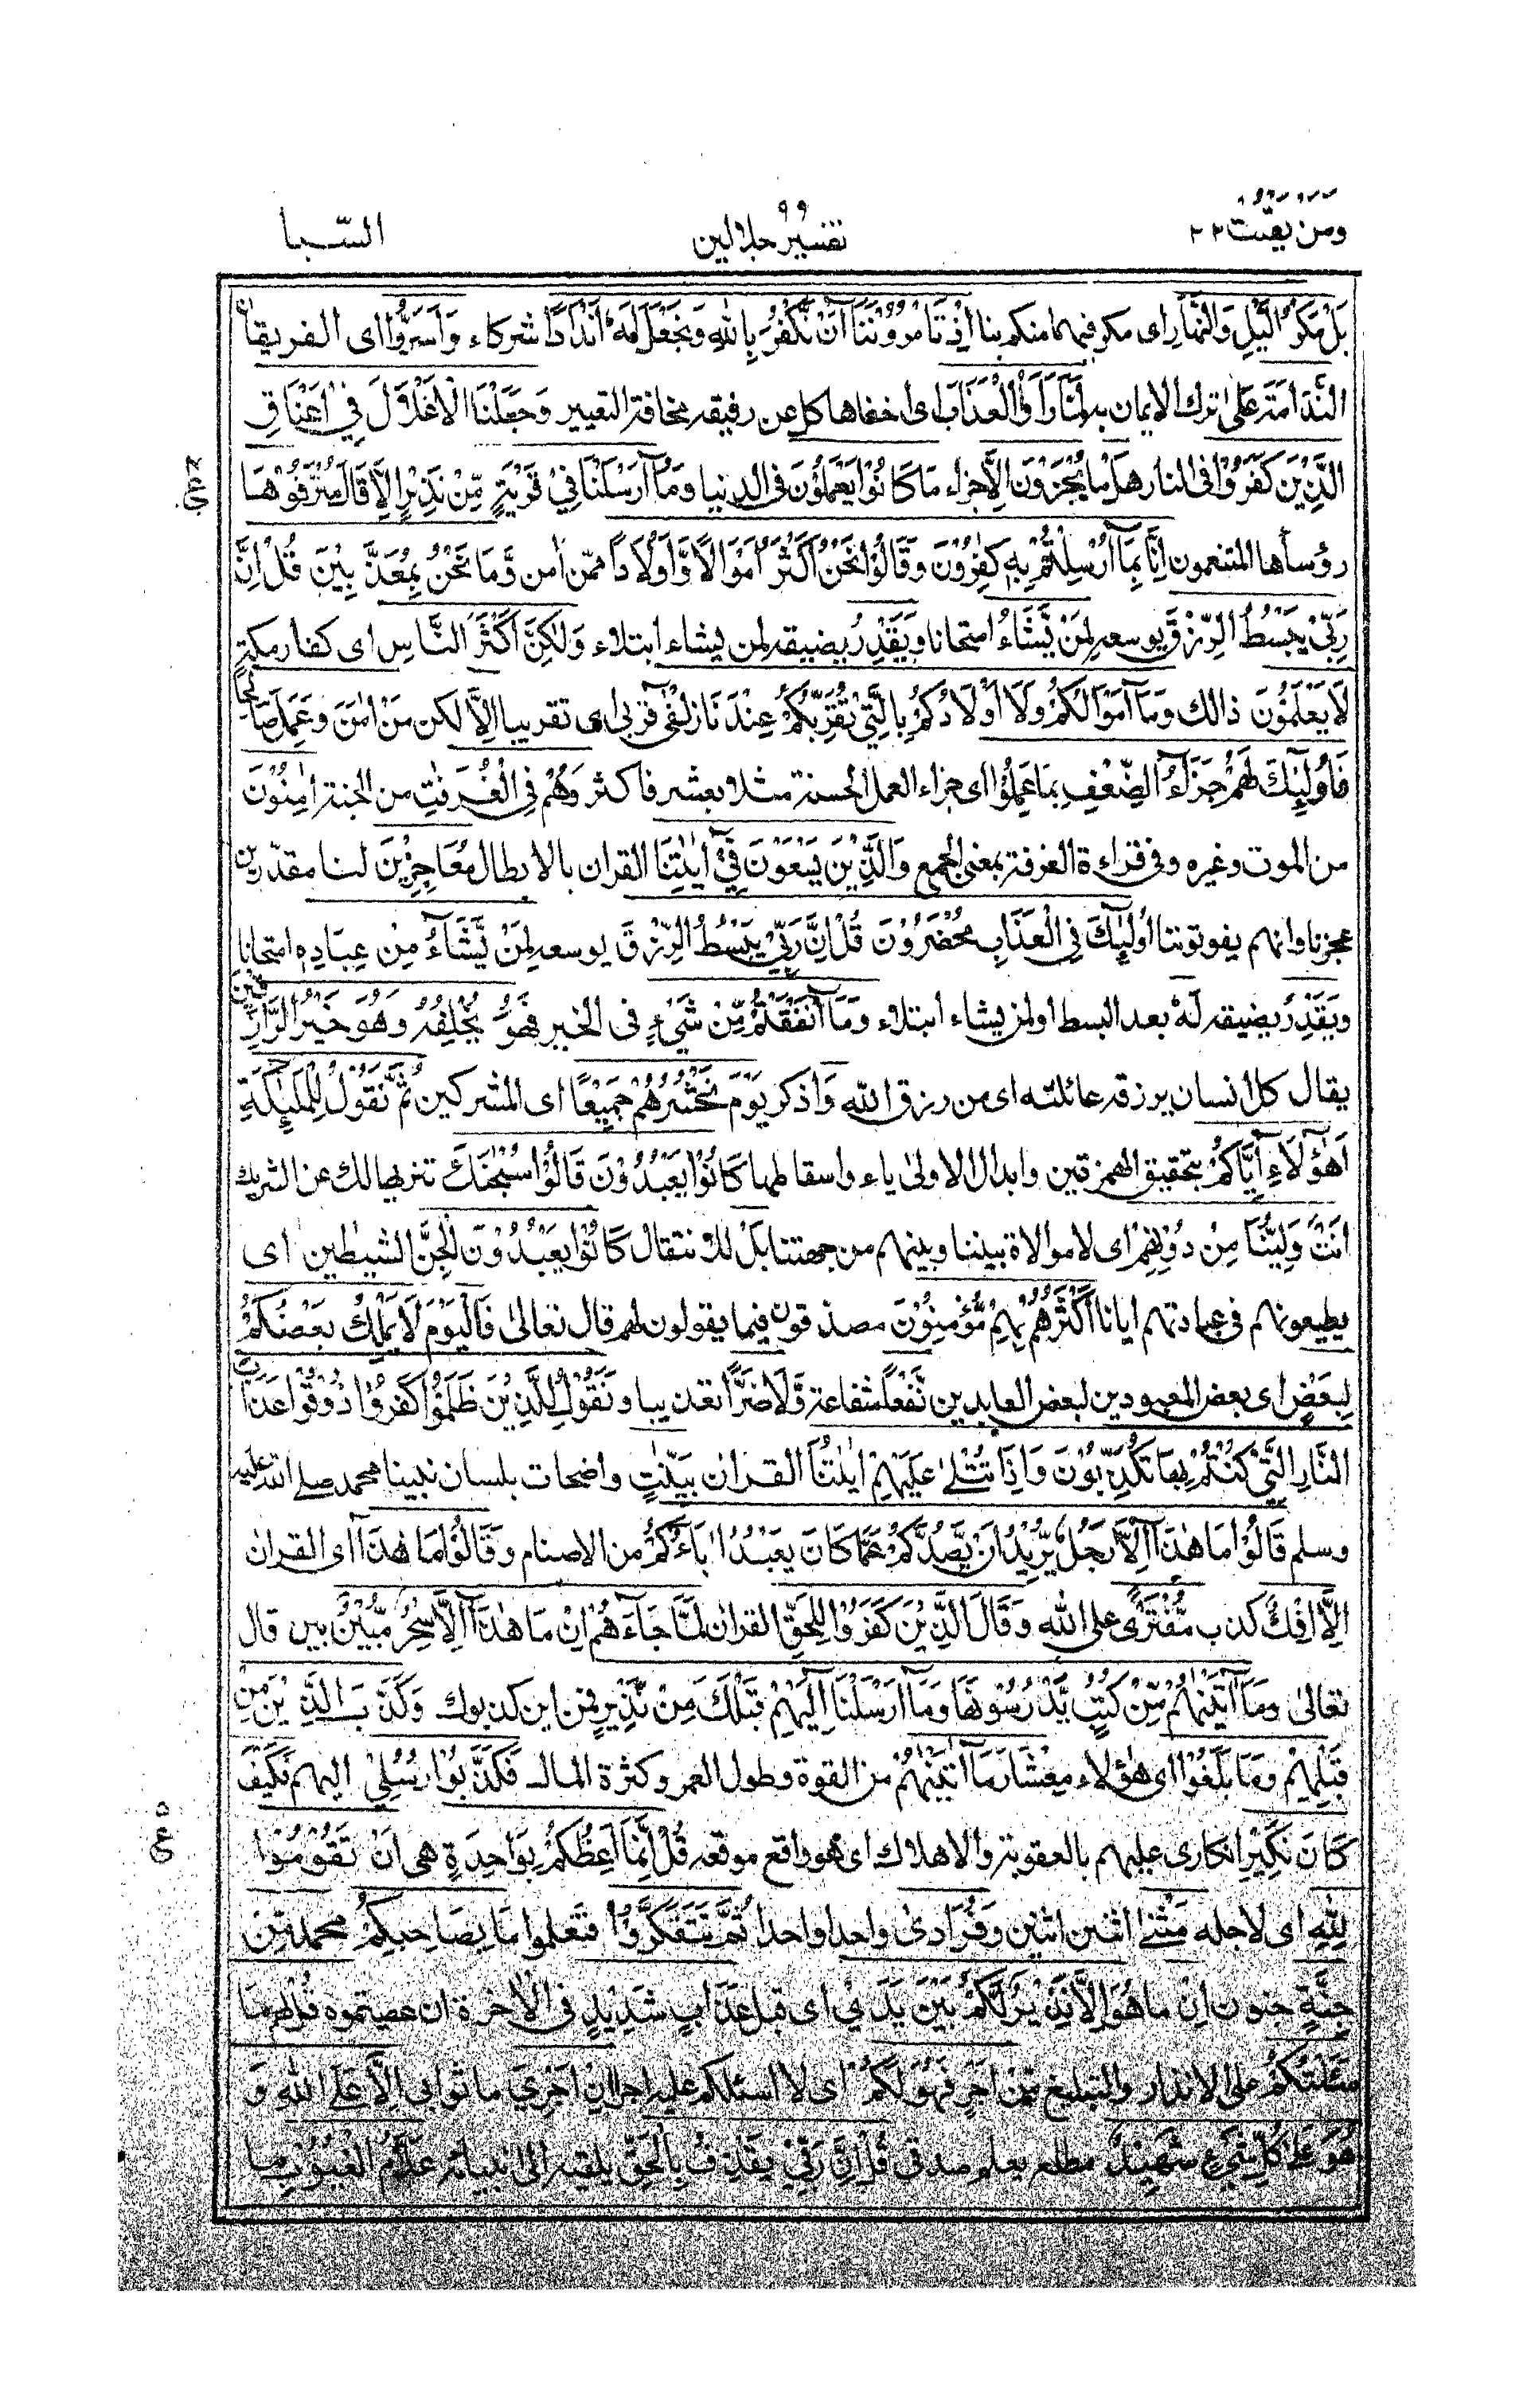 ومن يقنت ٢٢
٩٩
تفسير جلالين
السّبا
بَلْ مَكْرُ الَّيْلِ وَالنَّهَارِ اى مكر فيهما منكم بنا اِذْ تَأْمُرُوْنَنَآ اَنْ نَّكْفُرَ بِاللهِ وَنَجْعَلَ لَهٗ اَنْدَادًا شركاء وَاَسَرُّوا اى الفريقان
النَّدَامَةَ على ترك الايمان به لَمَّا رَاَوُا الْعَذَابَ اى اخفاها كل عن رفيقه مخافة التعيير وَجَعَلْنَا الْاَغْلٰلَ فِيْ اَعْنَاقِ
الَّذِيْنَ كَفَرُوْا فى النار هَلْ مَا يُجْزَوْنَ اِلَّا جزاء مَا كَانُوْا يَعْمَلُوْنَ فى الدنيا وَمَآ اَرْسَلْنَا فِيْ قَرْيَةٍ مِّنْ نَذِيْرٍ اِلَّا قَالَ مُتْرَفُوْهَا
رؤسأها المتنعمون اِنَّا بِمَآ اُرْسِلْتُمْ بِهٖ كٰفِرُوْنَ وَقَالُوْا نَحْنُ اَكْثَرُ اَمْوَالًا وَّاَوْلَادًا ممن اٰمن وَّمَا نَحْنُ بِمُعَذَّبِيْنَ قُلْ اِنَّ
رَبِّيْ يَبْسُطُ الرِّزْقَ يوسعه لِمَنْ يَّشَاءُ امتحانا وَيَقْدِرُ يضيقه لمن يشاء ابتلاء وَلٰكِنَّ اَكْثَرَ النَّاسِ اى كفار مكة
لَا يَعْلَمُوْنَ ذالك وَمَآ اَمْوَالُكُمْ وَلَا اَوْلَادُكُمْ بِالَّتِيْ تُقَرِّبُكُمْ عِنْدَنَا زُلْفٰى قربى اى تقريبا اِلَّا لكن مَنْ اٰمَنَ وَعَمِلَ صَالِحًا
فَاُولٰٓئِكَ لَهُمْ جَزَآءُ الضِّعْفِ بِمَا عَمِلُوْا اى جزاء العمل الحسنة مثلا بعشر فاكثر وَهُمْ فِى الْغُرُفٰتِ من الجنة اٰمِنُوْنَ
من الموت وغيره وفى قراءة الغرفة بمعنى الجمع وَالَّذِيْنَ يَسْعَوْنَ فِيْٓ اٰيٰتِنَا القران بالابطال مُعَاجِزِيْنَ لنا مقدّرين
عجزنا وانهم يفوتوننا اُولٰٓئِكَ فِى الْعَذَابِ مُحْضَرُوْنَ قُلْ اِنَّ رَبِّيْ يَبْسُطُ الرِّزْقَ يوسعه لِمَنْ يَّشَآءُ مِنْ عِبَادِهٖ امتحانا
وَيَقْدِرُ يضيقه لَهٗ بعد البسط او لمن يشاء ابتلاء وَمَآ اَنْفَقْتُمْ مِّنْ شَيْءٍ فى الخير فَهُوَ يُخْلِفُهٗ وَهُوَ خَيْرُ الرَّازِقِيْنَ
يقال كل انسان يرزق عائلته اى من رزق الله وَاذكر يَوْمَ نَحْشُرُهُمْ جَمِيْعًا اى المشركين ثُمَّ نَقُوْلُ لِلْمَلٰٓئِكَةِ
اَهٰٓؤُلَآءِ اِيَّاكُمْ بتحقيق الهمزتين وابدال الاولى ياء واسقاطها كَانُوْا يَعْبُدُوْنَ قَالُوْا سُبْحٰنَكَ تنزيها لك عن الشريك
اَنْتَ وَلِيُّنَا مِنْ دُوْنِهِمْ اى لا موالاة بيننا وبينهم من جهتنا بَلْ للانتقال كَانُوْا يَعْبُدُوْنَ الْجِنَّ الشيطين اى
يطيعونهم فى عبادتهم ايانا اَكْثَرُهُمْ بِهِمْ مُّؤْمِنُوْنَ مصدقون فيما يقولون لهم قال تعالى فَالْيَوْمَ لَا يَمْلِكُ بَعْضُكُمْ
لِبَعْضٍ اى بعض المعبودين لبعض العابدين نَّفْعًا شفاعة وَّلَا ضَرًّا تعذيبا وَنَقُوْلُ لِلَّذِيْنَ ظَلَمُوْا كفروا ذُوْقُوْا عَذَابَ
النَّارِ الَّتِيْ كُنْتُمْ بِهَا تُكَذِّبُوْنَ وَاِذَا تُتْلٰى عَلَيْهِمْ اٰيٰتُنَا القران بَيِّنٰتٍ واضحات بلسان نبينا محمد صلى الله عليه
وسلم قَالُوْا مَا هٰذَآ اِلَّا رَجُلٌ يُّرِيْدُ اَنْ يَّصُدَّكُمْ عَمَّا كَانَ يَعْبُدُ اٰبَآؤُكُمْ من الاصنام وَقَالُوْا مَا هٰذَآ اى القران
اِلَّا اِفْكٌ كذب مُّفْتَرًى على الله وَقَالَ الَّذِيْنَ كَفَرُوْا لِلْحَقِّ القران لَمَّا جَآءَهُمْ اِنْ مَا هٰذَآ اِلَّا سِحْرٌ مُّبِيْنٌ بين قال
تعالى وَمَآ اٰتَيْنٰهُمْ مِّنْ كُتُبٍ يَّدْرُسُوْنَهَا وَمَآ اَرْسَلْنَا اِلَيْهِمْ قَبْلَكَ مِنْ نَّذِيْرٍ فمن اين كذبوك وَكَذَّبَ الَّذِيْنَ مِنْ
قَبْلِهِمْ وَمَا بَلَغُوْا اى هؤلاء مِعْشَارَ مَآ اٰتَيْنٰهُمْ من القوة وطول العمر وكثرة المال فَكَذَّبُوْا رُسُلِيْ اليهم فَكَيْفَ
كَانَ نَكِيْرِ انكارى عليهم بالعقوبة والاهلاك اى هو واقع موقعه قُلْ اِنَّمَآ اَعِظُكُمْ بِوَاحِدَةٍ هى اَنْ تَقُوْمُوْا
لِلّٰهِ اى لاجله مَثْنٰى اثنين اثنين وَفُرَادٰى واحدا واحدا ثُمَّ تَتَفَكَّرُوْا فتعلموا مَا بِصَاحِبِكُمْ محمد مِّنْ
جِنَّةٍ جنون اِنْ ما هُوَ اِلَّا نَذِيْرٌ لَّكُمْ بَيْنَ يَدَيْ اى قبل عَذَابٍ شَدِيْدٍ فى الاٰخرة ان عصيتموه قُلْ لهم مَا
سَئَلْتُكُمْ على الانذار والتبليغ مِّنْ اَجْرٍ فَهُوَ لَكُمْ اى لا اسئلكم عليه اجرا اِنْ اَجْرِيَ ما ثوابى اِلَّا عَلَى اللهِ وَ
هُوَ عَلٰى كُلِّ شَيْءٍ شَهِيْدٌ مطلع يعلم صدقى قُلْ اِنَّ رَبِّيْ يَقْذِفُ بِالْحَقِّ يلقيه الى انبيائه عَلَّامُ الْغُيُوْبِ ما